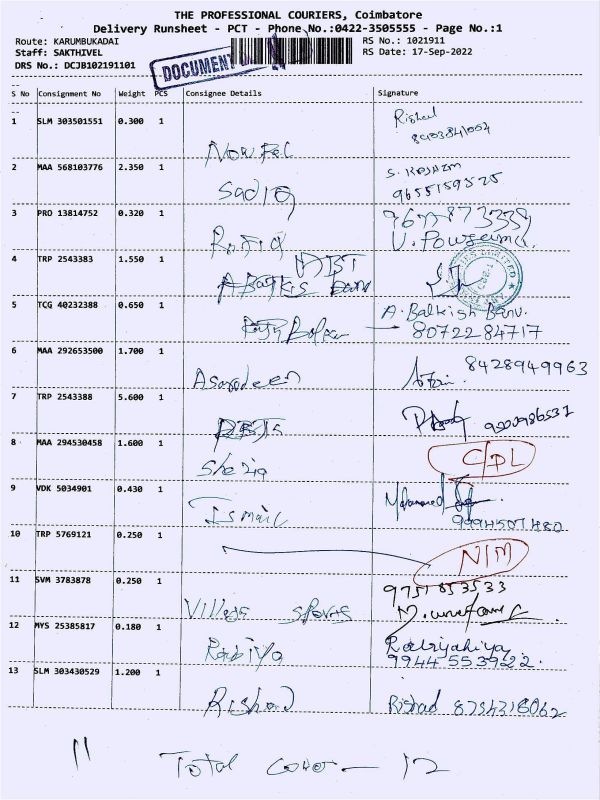 THE PROFESSIONAL COURIERS, Coimbatore
Delivery Runsheet - PCT - Phone No.:0422-3505555 - Page No.:1
Route: KARUMBUKADAI RS No.: 1021911
Staff: SAKTHIVEL RS Date: 17-Sep-2022
DRS No.: DCJB102191101
DOCUMENT
S No Consignment No Weight PCS Consignee Details Signature
1 SLM 303501551 0.300 1
Nowfel
2 MAA 568103776 2.350 1
Sadiq 9655159525
3 PRO 13814752 0.320 1
4 TRP 2543383 1.550 1
5 TCG 40232388 0.650 1 A. Balkish Banu.
8072284717
6 MAA 292653500 1.700 1 8428949963
7 TRP 2543388 5.600 1
8 MAA 294530458 1.600 1 C/DL
9 VDK 5034901 0.430 1 Mohammed
Ismail
10 TRP 5769121 0.250 1 N/M
11 SVM 3783878 0.250 1 9751853533
Village sports
12 MYS 25385817 0.180 1
Rabiya 9944553922.
13 SLM 303430529 1.200 1
Rishad Rishad 8754318062
11 Total cover - 12